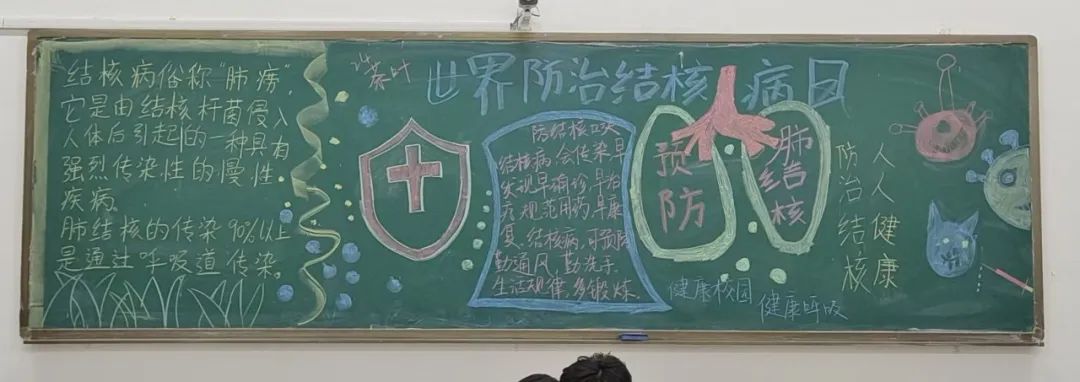 结核病俗称"肺痨",
它是由结核杆菌侵入
人体后引起的一种具有
强烈传染性的慢性
疾病。
肺结核的传染90%以上
是通过呼吸道传染。
世界防治结核病日
防结核口诀
结核病,会传染,早
发现,早确诊,早治
疗,规范用药,早康
复。结核病,可预防
勤通风,勤洗手,
生活规律,多锻炼。
预防
肺结核
人人健康
防治结核
健康校园
健康呼吸